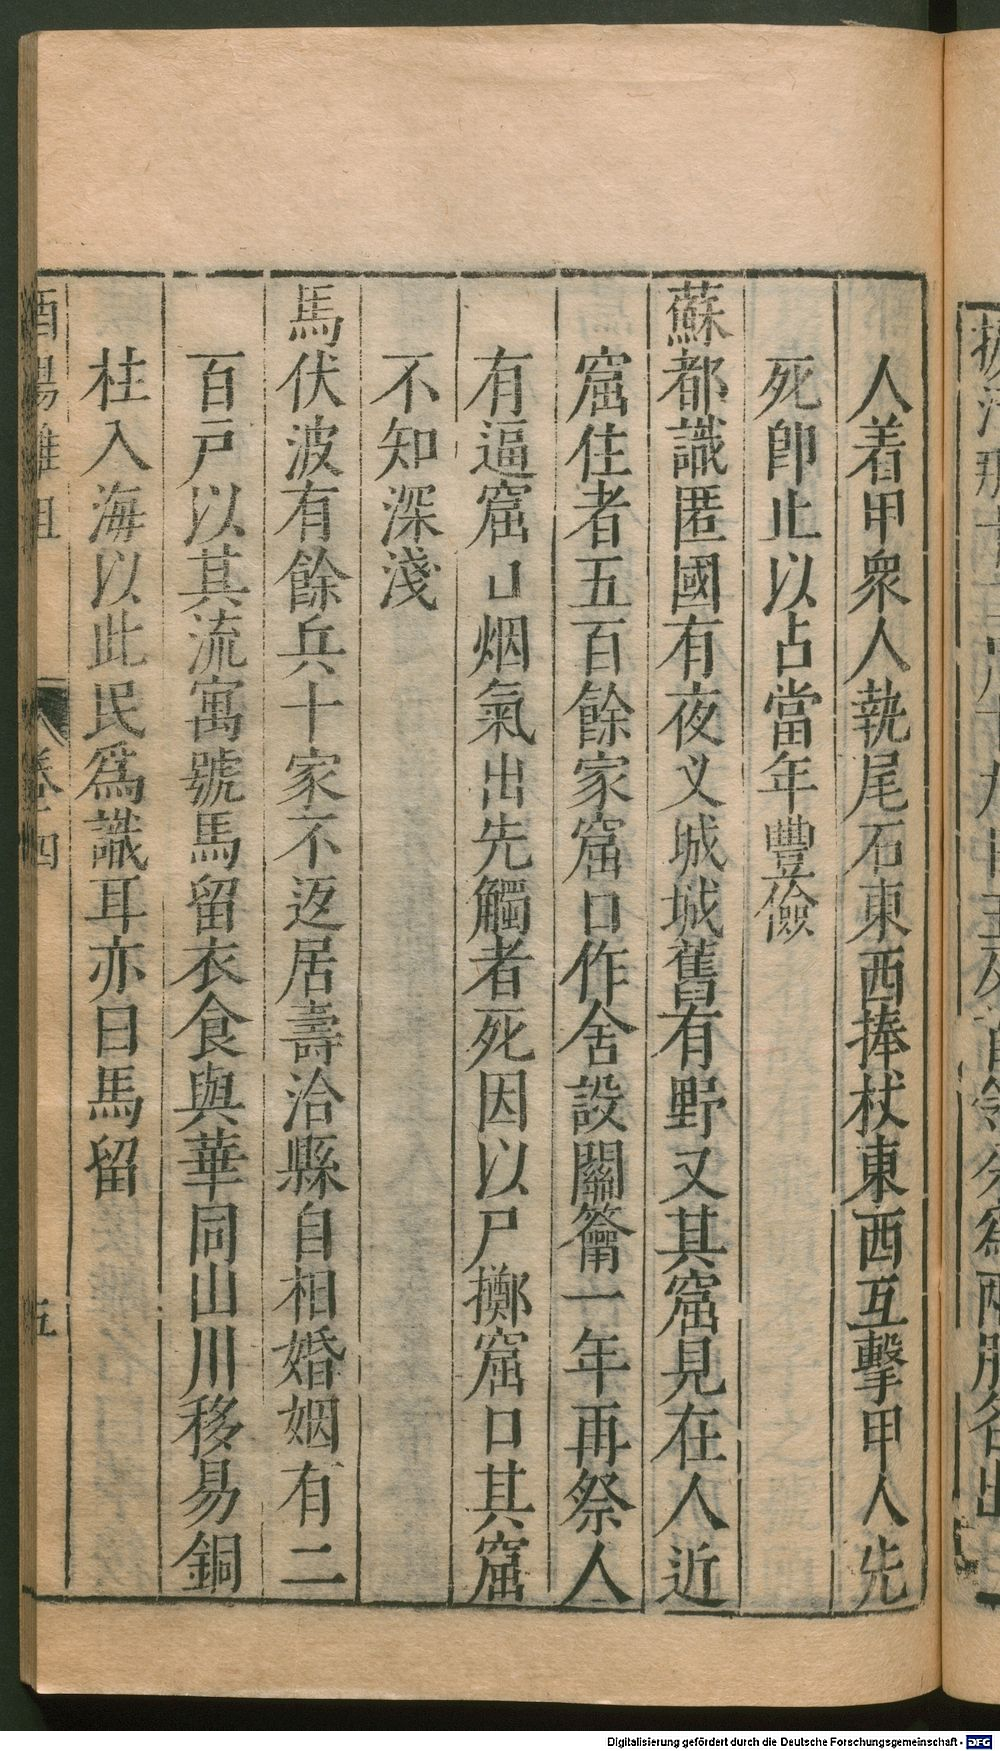 人着甲衆人執尾石東西捧杖東西互擊甲人先
死卽止以占當年豐儉
蘇都識匿國有夜义城城舊有野又其窟見在人近
窟住者五百餘家窟口作舍設關籥一年再祭人
有逼窟口烟氣出先觸者死因以尸擲窟口其窟
不知深淺
馬伏波有餘兵十家不返居壽洽縣自相婚姻有二
百戸以其流寓號馬留衣食與華同山川移易銅
柱入海以此民爲識耳亦曰馬留
酉陽雜俎 卷十四 五
Digitalisierung gefördert durch die Deutsche Forschungsgemeinschaft - DFG